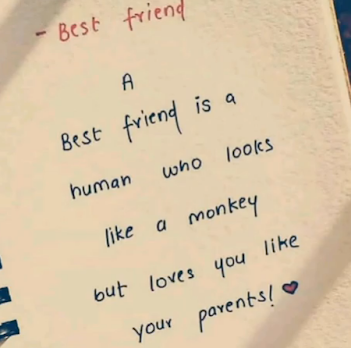 - Best friend
A
Best friend is a
human who looks
like a monkey
but loves you like
your parents! ❤